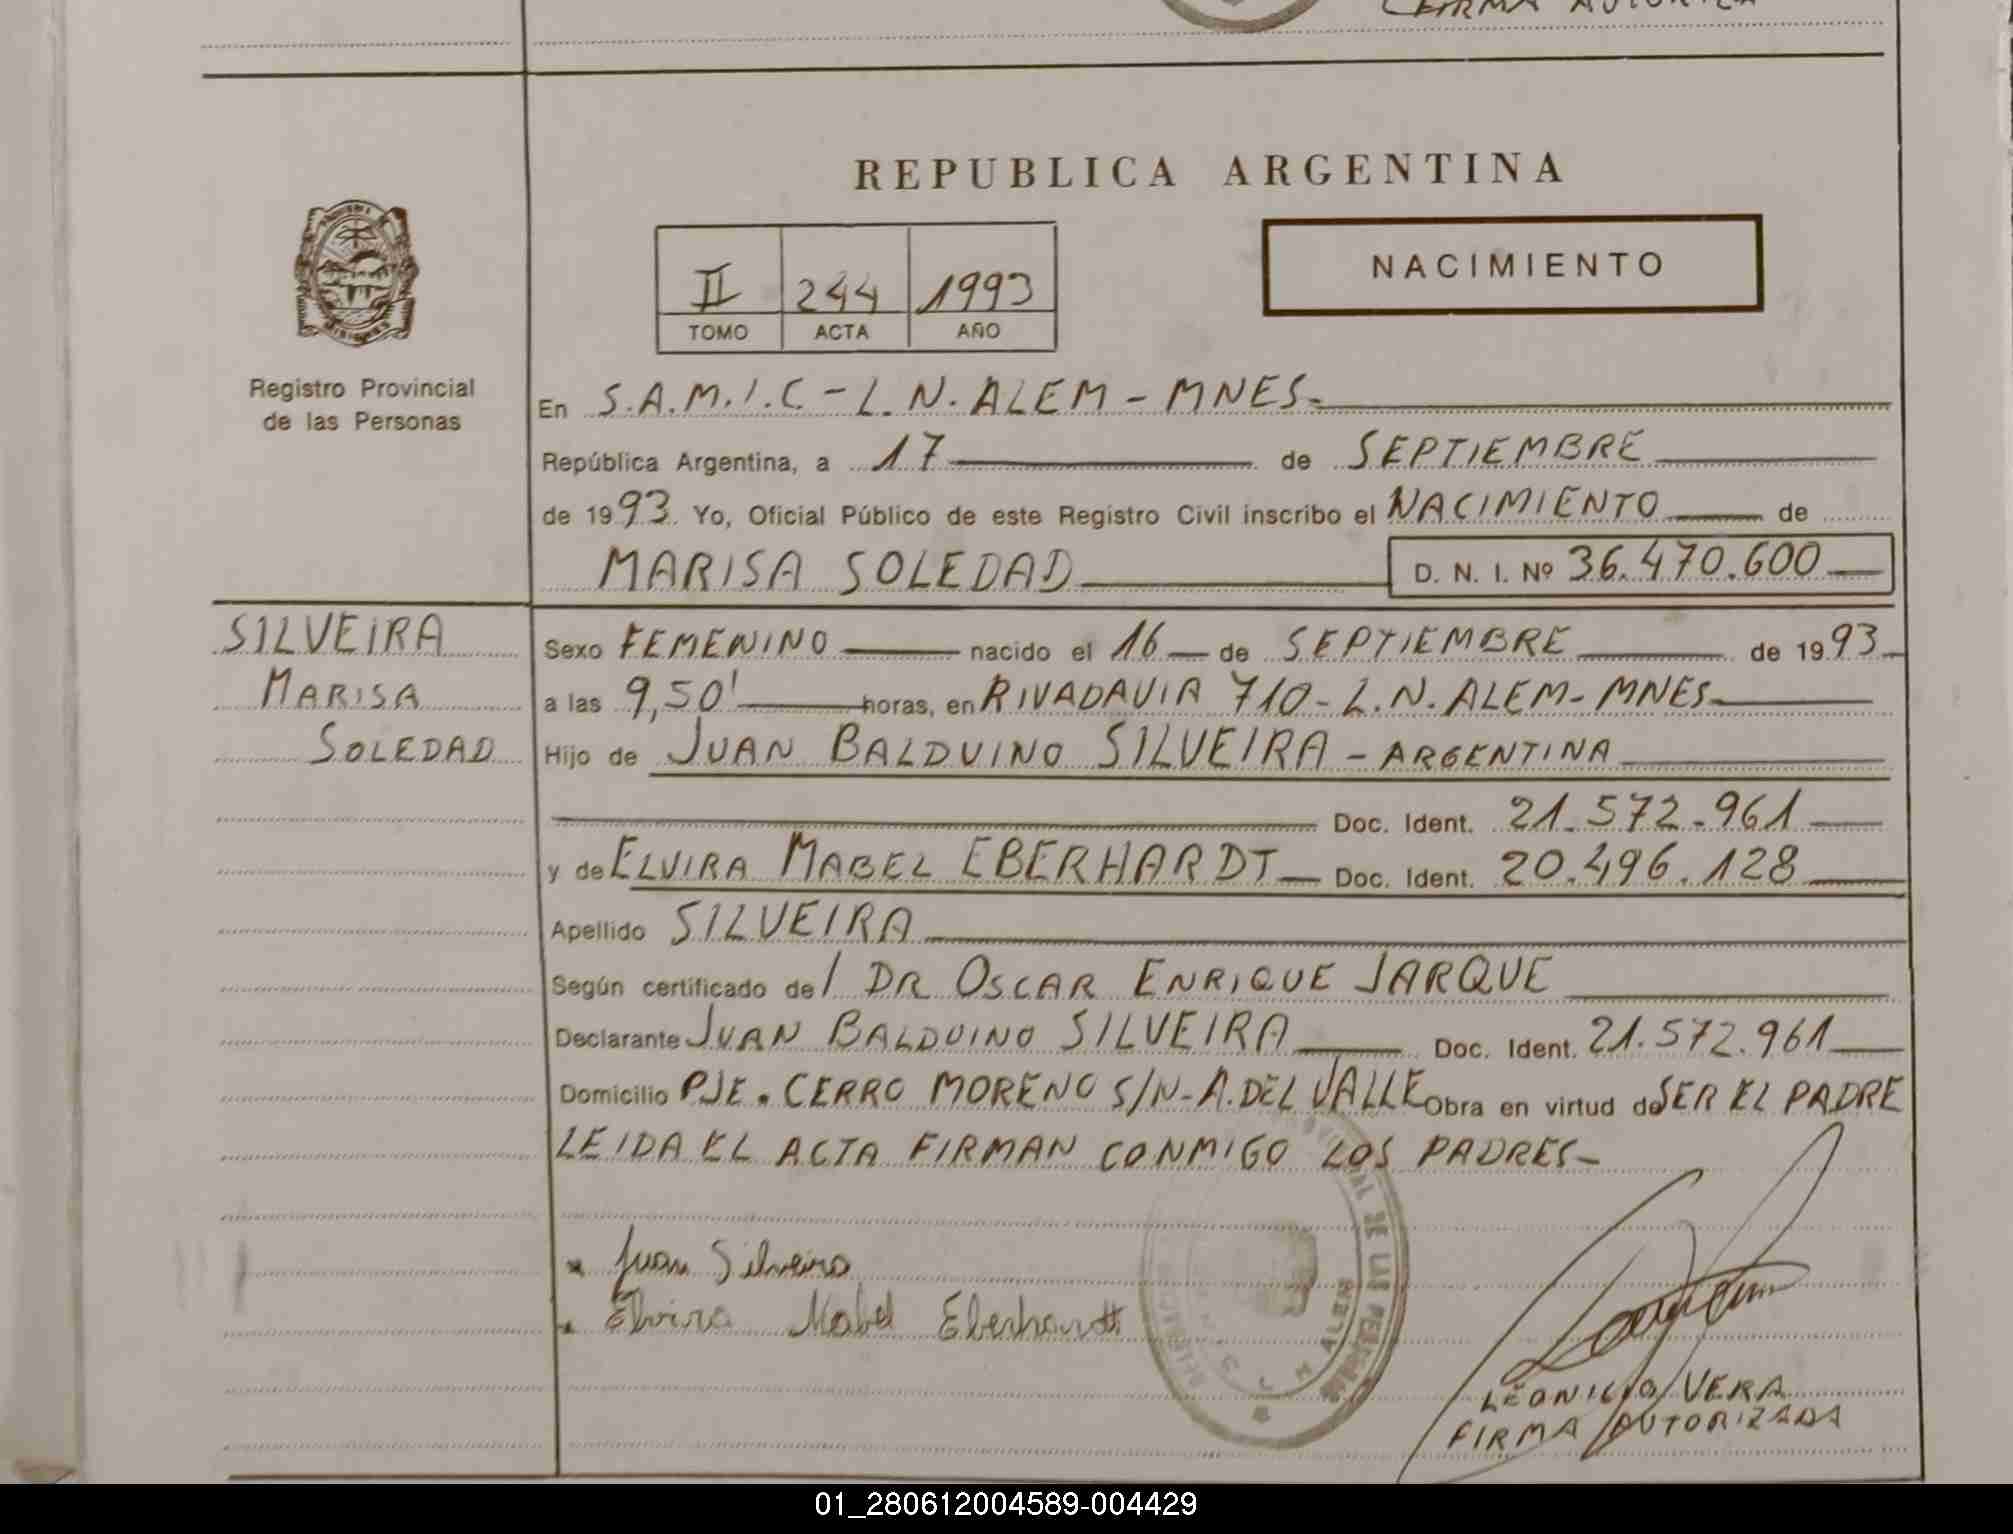 FIRMA AUTORIZA
REPUBLICA ARGENTINA
II 244 1993
TOMO ACTA AÑO
NACIMIENTO
Registro Provincial
de las Personas
En S.A.M.I.C - L.N. ALEM - MNES-
República Argentina, a 17 de SEPTIEMBRE
de 1993. Yo, Oficial Público de este Registro Civil inscribo el NACIMIENTO de
MARISA SOLEDAD D. N. I. Nº 36.470.600
SILVEIRA
MARISA
SOLEDAD
Sexo FEMENINO nacido el 16 de SEPTIEMBRE de 1993
a las 9,50' horas, en RIVADAVIA 710 - L.N. ALEM - MNES
Hijo de JUAN BALDUINO SILVEIRA - ARGENTINA
Doc. Ident. 21.572.961
y de ELVIRA MABEL EBERHARDT Doc. Ident. 20.496.128
Apellido SILVEIRA
Según certificado del DR OSCAR ENRIQUE JARQUE
Declarante JUAN BALDUINO SILVEIRA Doc. Ident. 21.572.961
Domicilio PJE. CERRO MORENO S/N - A. DEL VALLE Obra en virtud de SER EL PADRE
LEIDA EL ACTA FIRMAN CONMIGO LOS PADRES-
Juan Silveira
Elvira Mabel Eberhardt
DE LAS
ALEM
VERA
FIRMA AUTORIZADA
01_280612004589-004429